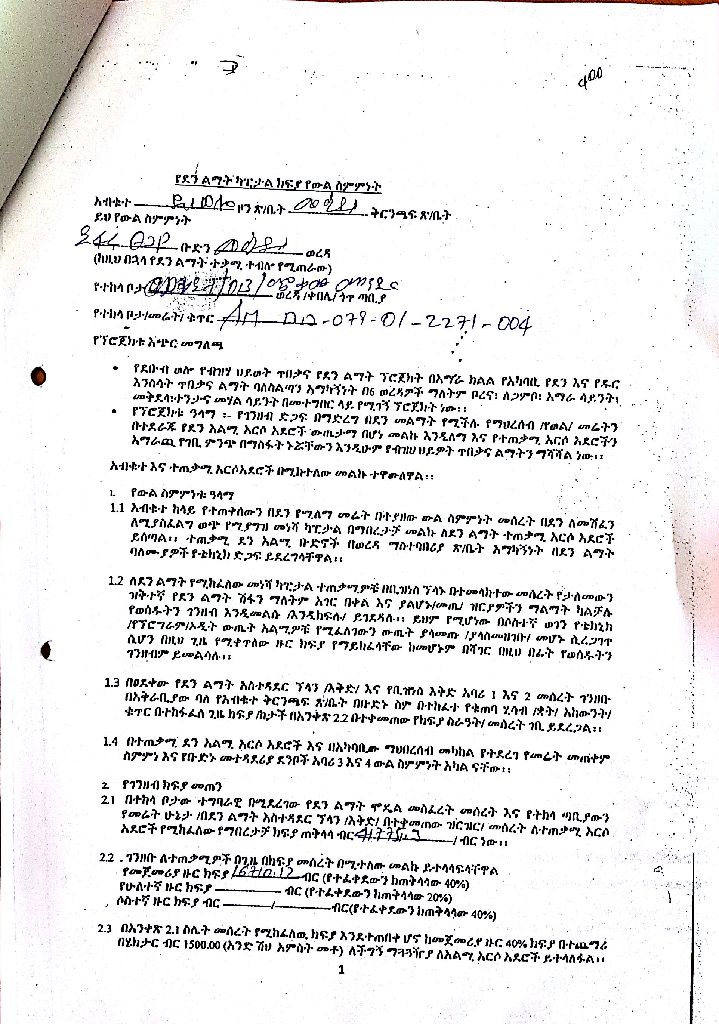 400
የደን ልማት ካፒታል ክፍያ የውል ስምምነት
አብቁተ ዞን ጽ/ቤት ቅርንጫፍ ጽ/ቤት
ይህ የውል ስምምነት
ቡድን ወረዳ
(ከዚህ በኋላ የደን ልማት ተቃሚ ተብሎ የሚጠራው)
የተከላ ቦታ ወረዳ /ቀበሌ/ ጎጥ ጣቢያ
የተከላ ቦታ/መሬት/ ቁጥር AM DD-079-01-2271-004
የፕሮጀክቱ አጭር መግለጫ
• የደቡብ ወሎ የብዝሃ ህይወት ጥበቃና የደን ልማት ፕሮጀክት በአማራ ክልል የአካባቢ የደን እና የዱር
እንስሳት ጥበቃና ልማት ባለስልጣን አማካኝነት በ6 ወረዳዎች ማለትም ቦረና፣ ለጋምቦ፣ አማራ ሳይንት፣
መቅደላ፣ተንታና መሃል ሳይንት በመተግበር ላይ የሚገኝ ፕሮጀክት ነው፡፡
• የፕሮጀክቱ ዓላማ ፡- የገንዘብ ድጋፍ በማድረግ በደን መልማት የሚችሉ የማህረሰብ /የወል/ መሬትን
በተደራጁ የደን አልሚ አርሶ አደሮች ውጤታማ በሆነ መልኩ እንዲለማ እና የተጠቃሚ አርሶ አደሮችን
አማራጪ የገቢ ምንጭ በማስፋት ኑሯቸውን እንዲሁም የብዝሀ ህይዎት ጥበቃና ልማትን ማሻሻል ነው፡፡
አብቁተ እና ተጠቃሚ አርሶአደሮች በሚከተለው መልኩ ተዋውለዋል፡፡
1. የውል ስምምነቱ ዓላማ
1.1 አብቁተ ከላይ የተጠቀሰውን በደን የሚለማ መሬት በተያዘው ውል ስምምነት መሰረት በደን ለመሸፈን
ለሚያስፈልግ ወጭ የሚያግዝ መነሻ ካፒታል በማበረታቻ መልኩ ለደን ልማት ተጠቃሚ አርሶ አደሮች
ይሰጣል፡፡ ተጠቃሚ ደን አልሚ ቡድኖች በወረዳ ማስተባበሪያ ጽ/ቤት አማካኝነት በደን ልማት
ባለሙያዎች የቴክኒክ ድጋፍ ይደረግላቸዋል፡፡
1.2 ለደን ልማት የሚከፈለው መነሻ ካፒታል ተጠቃሚዎቹ በቢዝነስ ፕላኑ በተመላከተው መሰረት የታለመውን
ዝቅተኛ የደን ልማት ሽፋን ማለትም አገር በቀል እና ያልሆኑ/መጤ/ ዝርያዎችን ማልማት ካልቻሉ
የወሰዱትን ገንዘብ እንዲመልሱ /እንዲከፍሉ/ ይገደዳሉ፡፡ ይህም የሚሆነው በሶስተኛ ወገን የቴክኒክ
/የፕሮግራም/ኦዲት ውጤት አልሚዎቹ የሚፈለገውን ውጤት ያላመጡ /ያላስመዘገቡ/ መሆኑ ሲረጋገጥ
ሲሆን በዚህ ጊዜ የሚቀጥለው ዙር ክፍያ የማይከፈላቸው ከመሆኑም በሻገር በዚህ በፊት የወሰዱትን
ገንዘብም ይመልሳሉ፡፡
1.3 በፀደቀው የደን ልማት አስተዳደር ፕላን /እቅድ/ እና የቢዝነስ እቅድ አባሪ 1 እና 2 መሰረት ገንዘቡ
በአቅራቢያው ባለ የአብቁተ ቅርንጫፍ ጽ/ቤት በቡድኑ ስም በተከፈተ የቁጠባ ሂሳብ /ቋት/ አካውንት/
ቁጥር በተከፋፈለ ጊዜ ክፍያ /ከታች በአንቀጽ 2.2 በተቀመጠው የክፍያ ስራዓት/ መሰረት ገቢ ይደረጋል፡፡
1.4 በተጠቃሚ ደን አልሚ አርሶ አደሮች እና በአካባቢው ማህበረሰብ መካከል የተደረገ የመሬት መጠቀም
ስምምነ እና የቡድኑ መተዳደሪያ ደንቦች አባሪ 3 እና 4 ውል ስምምነት አካል ናቸው፡፡
2. የገንዘብ ክፍያ መጠን
2.1 በተከላ ቦታው ተግባራዊ በሚደረገው የደን ልማት ሞዴል መስፈረት መሰረት እና የተከላ ጣቢያውን
የመሬት ሁኔታ /በደን ልማት አስተዳደር ፕላን /እቅድ/ በተቀመጠው ዝርዝር/ መሰረት ለተጠቃሚ አርሶ
አደሮች የሚከፈለው የማበረታቻ ክፍያ ጠቅላላ ብር 41775.3 / ብር ነው፡፡
2.2 . ገንዘቡ ለተጠቃሚዎች በጊዜ በክፍያ መሰረት በሚተለው መልኩ ይተላለፍላቸዋል
የመጀመሪያ ዙር ክፍያ 16710.12 ብር (የተፈቀደውን ከጠቅላላው 40%)
የሁለተኛ ዙር ክፍያ ብር (የተፈቀደውን ከጠቅላላው 20%)
ሶስተኛ ዙር ክፍያ ብር / ብር(የተፈቀደውን ከጠቅላላው 40%)
2.3 በአንቀጽ 2.1 ስሌት መሰረት የሚከፈለዉ ክፍያ እንደተጠበቀ ሆኖ ከመጀመሪያ ዙር 40% ክፍያ በተጨማሪ
በሄክታር ብር 1500.00 (አንድ ሽህ አምስት መቶ) ለችግኝ ማጓጓዥያ ለአልሚ አርሶ አደሮች ይተላለፋል፡፡
1